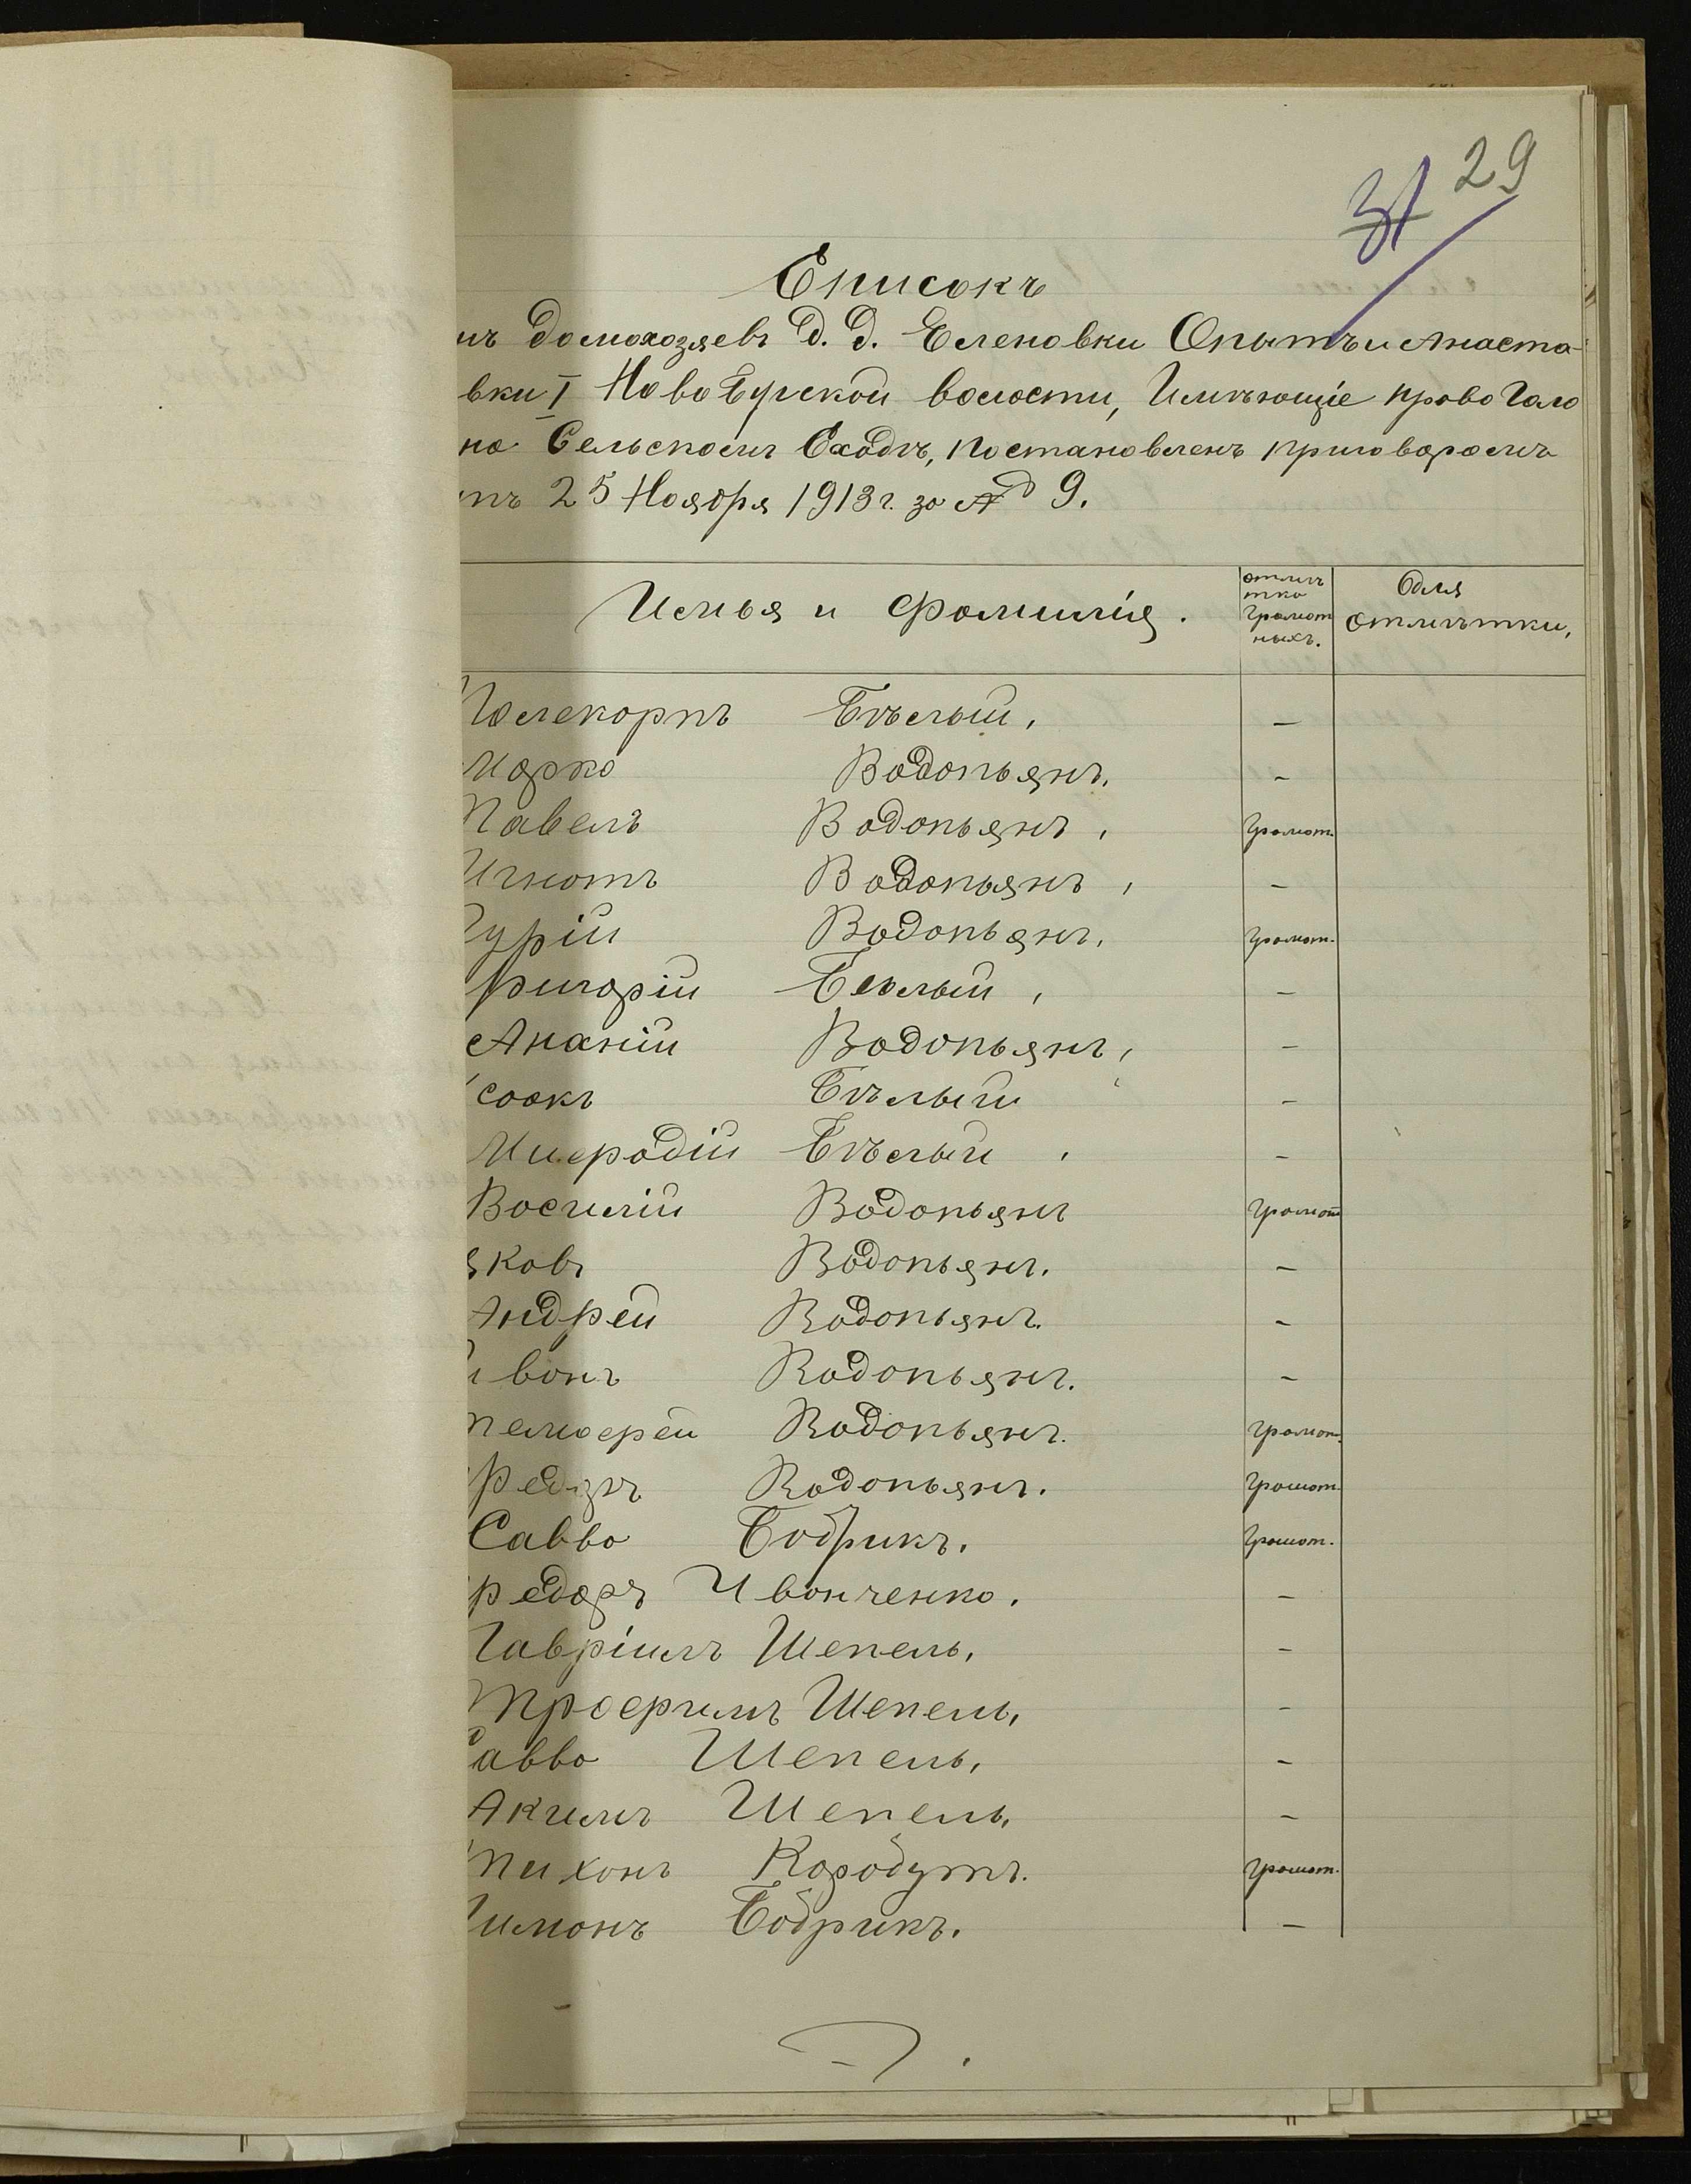 31 29
Списокъ
нъ домохозяевъ д. д. Еленовки Опытъ и Анаста-
вки I Ново Бугской волости, Имѣющіе право Голо
на Сельскомъ Сходѣ, постановленъ приговоромъ
тъ 25 Ноября 1913 г. за № 9.
Имья и Фамилія.
отмѣтка Грамотныхъ.
Для отмѣтки,
Полекарпъ Бѣлый, —
Марко Водопьянъ. —
Павелъ Водопьянъ, Грамот.
Игнатъ Водопьянъ, —
Гурій Водопьянъ, Грамот.
ригорій Беьлый, —
Ананій Водопьянъ, —
саакъ Бѣлый —
Иродій Бѣлый, —
Василій Водопьянъ Грамот
яковъ Водопьянъ. —
Андрей Водопьянъ. —
Иванъ Водопьянъ. —
Тимофей Водопьянъ. Грамот.
Федоръ Водопьянъ. Грамот.
Савва Бобрикъ. Грамот.
Федоръ Иванченко. —
Гавріилъ Шепель, —
Трофимъ Шепель, —
авва Шепель, —
Акимъ Шепель, —
Тихонъ Карабутъ. Грамот.
имонъ Бобрикъ. —